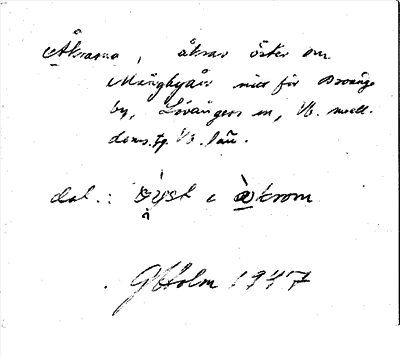 Åkrarna, åkrar öster om
Mångbyån mitt för Broänge
by, Lövångers sn, Vb. mell.
doms. tg. Vb. län.
dat.: i åkrom
G Holm 1947